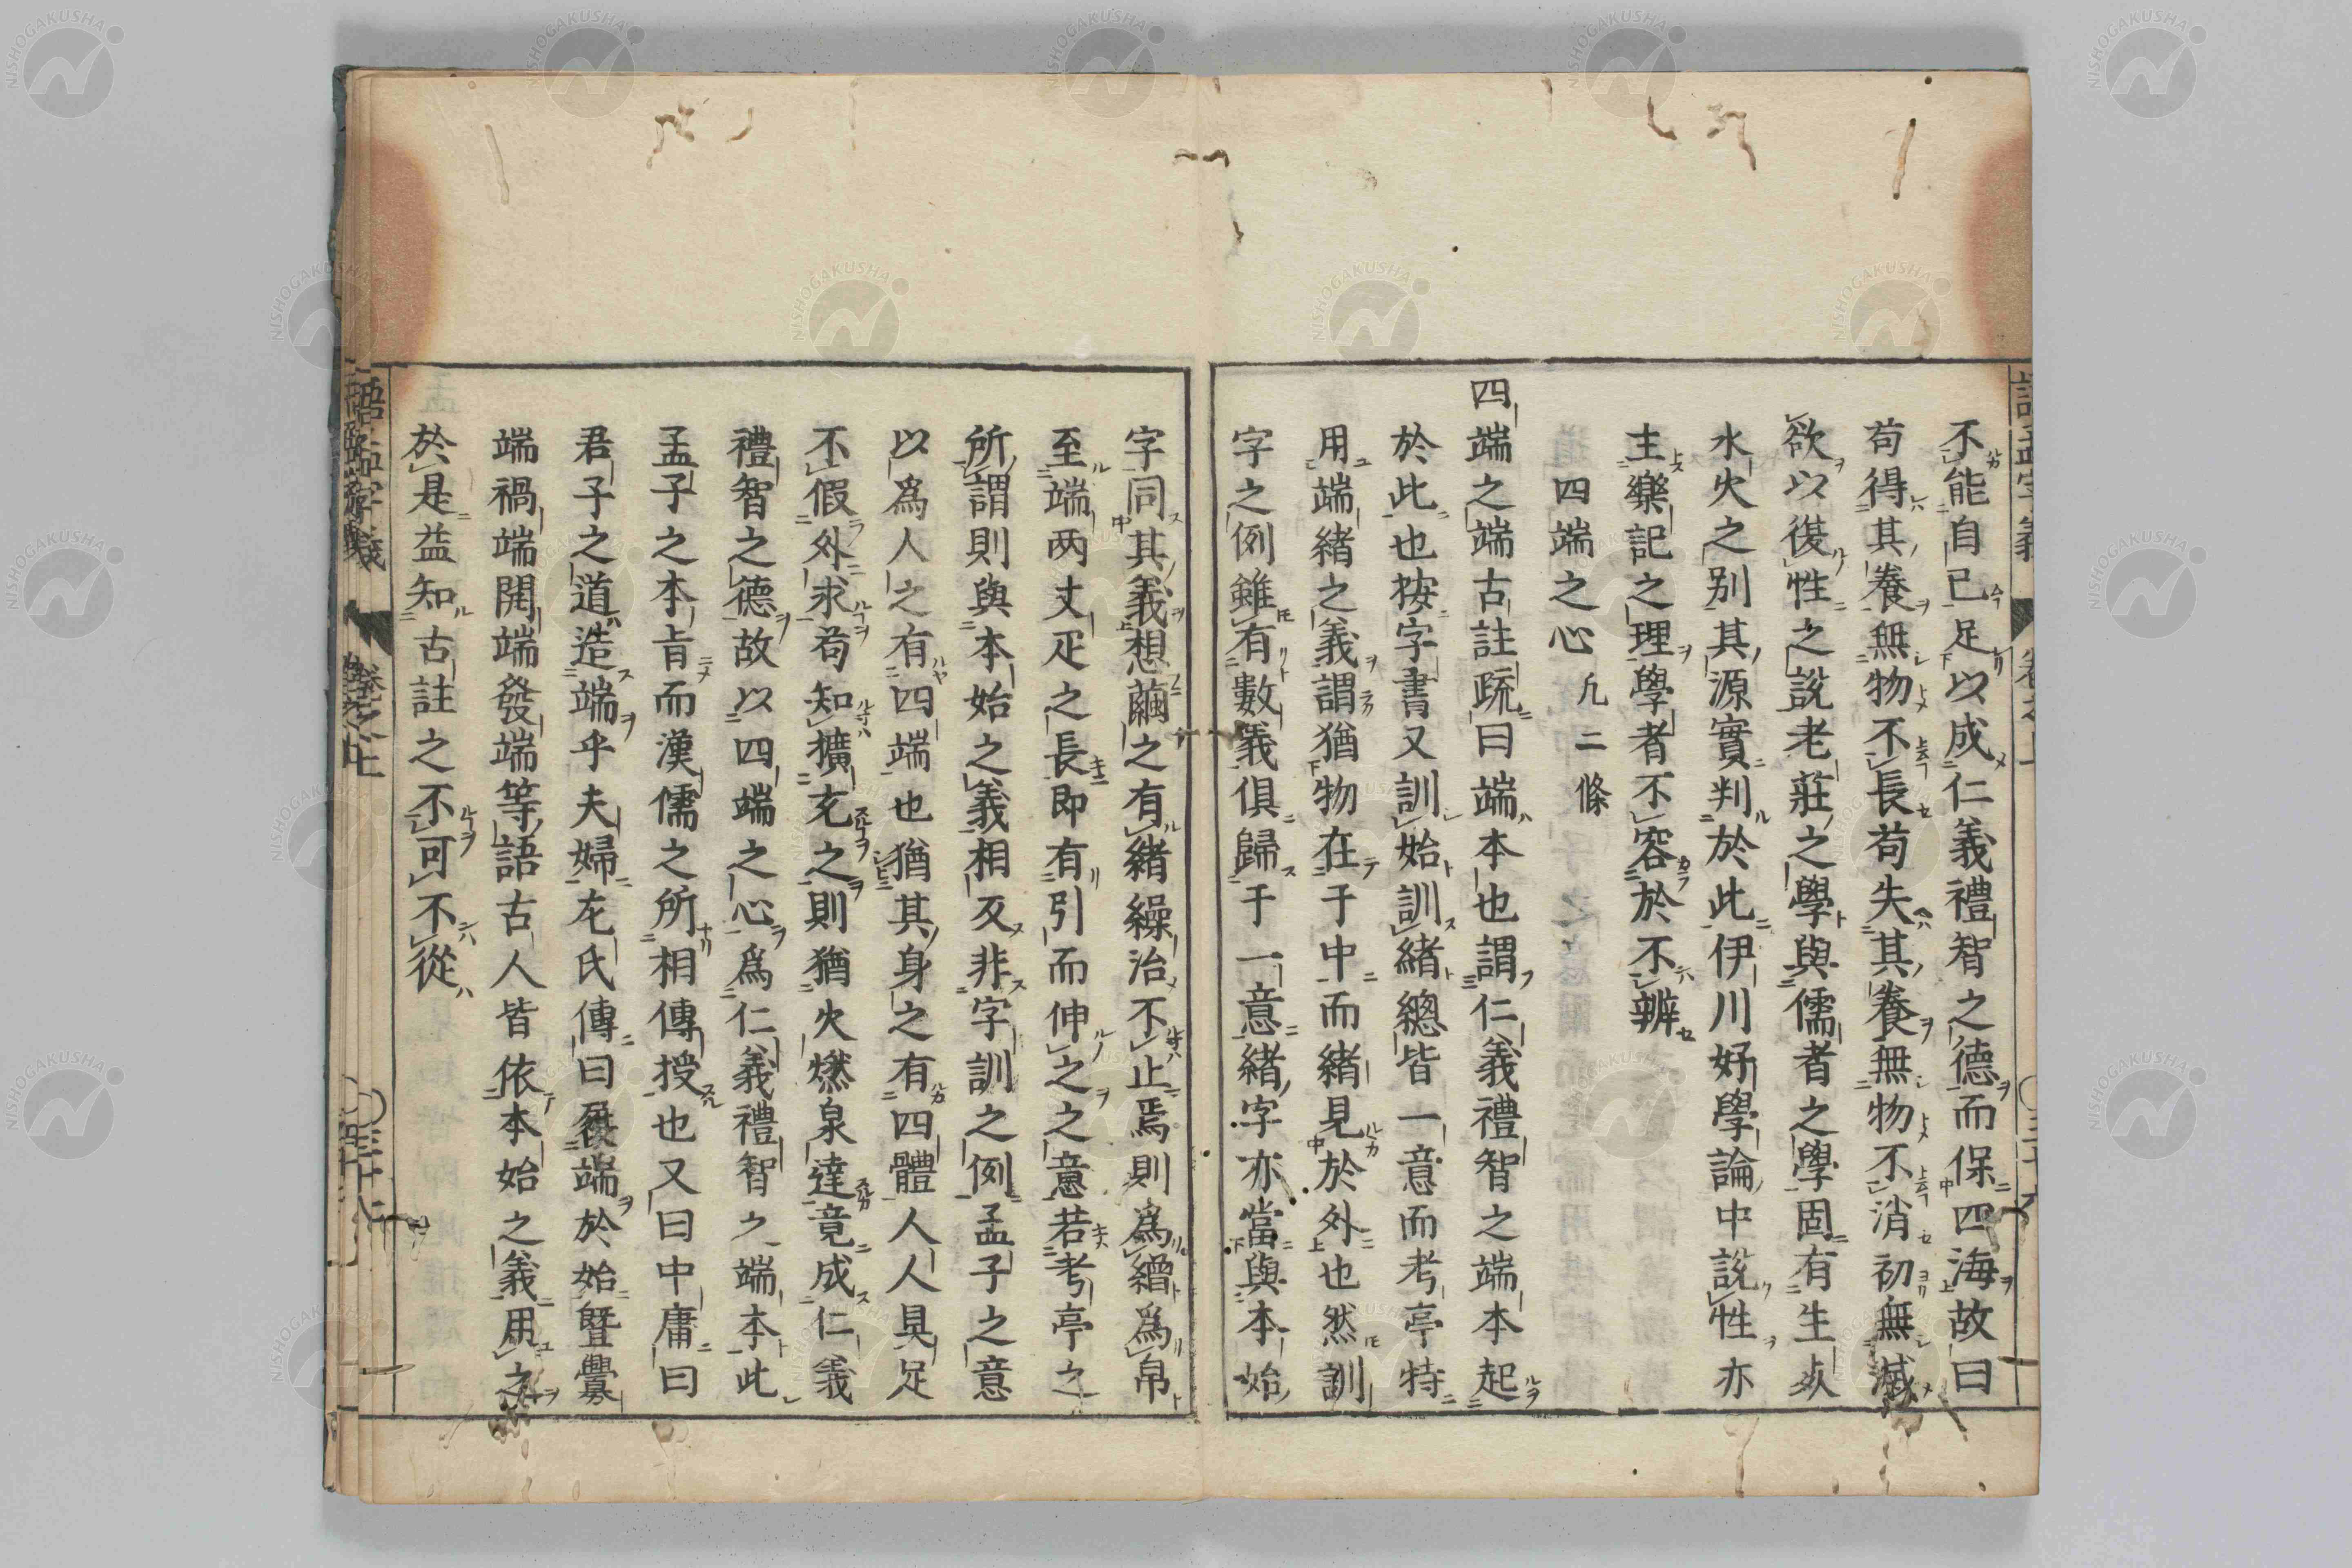 不能自已足以成仁義禮智之德而保四海故曰
苟得其養無物不長苟失其養無物不消初無滅
欲以復性之說老莊之學與儒者之學固有生死
水火之别其源實判於此伊川好學論中說性亦
主樂記之理學者不容於不辨
四端之心 凡二條
四端之端古註疏曰端本也謂仁義禮智之端本起
於此也按字書又訓始訓緒總皆一意而考亭特
用端緒之義謂猶物在于中而緒見於外也然訓
字之例雖有數義俱歸于一意緒字亦當與本始
字同其義想繭之有緒繰治不止焉則爲繒爲帛
至端两丈疋之長即有引而伸之之意若考亭之
所謂則與本始之義相反非字訓之例孟子之意
以爲人之有四端也猶其身之有四體人人具足
不假外求苟知擴充之則猶火燃泉達竟成仁義
禮智之德故以四端之心爲仁義禮智之端本此
孟子之本旨而漢儒之所相傳授也又曰中庸曰
君子之道造端乎夫婦左氏傳曰履端於始暨釁
端禍端開端發端等語古人皆依本始之義用之
於是益知古註之不可不從
語孟字義
卷之上
NISHOGAKUSHA